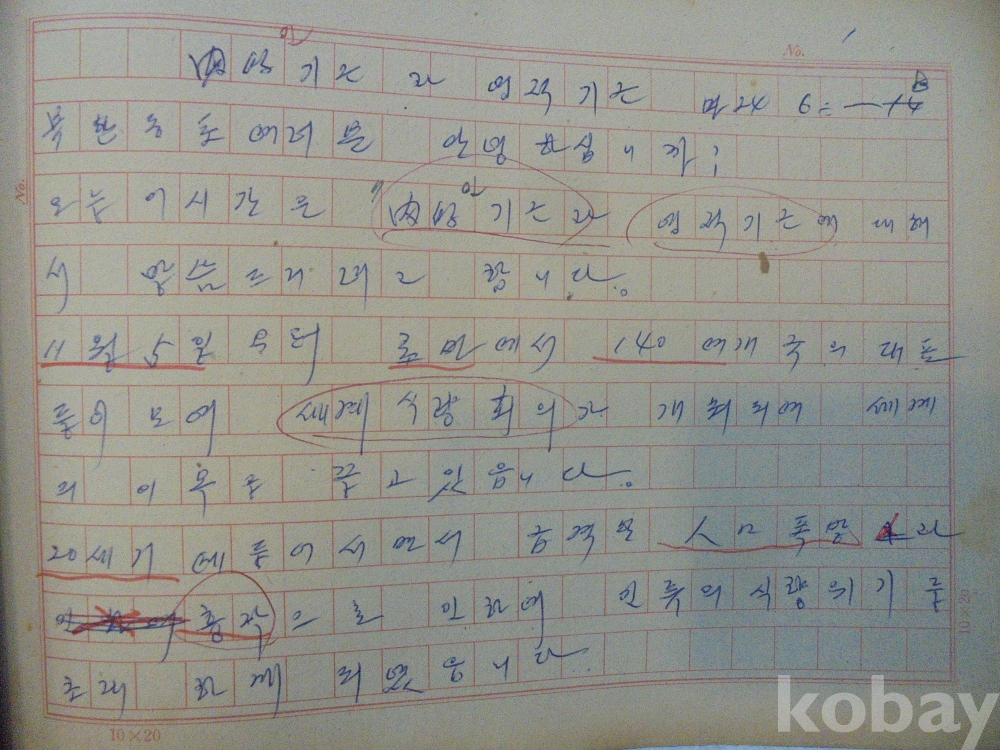 기근 과 영적기근 마24 6:-14
북한동포여러분 안녕하십니까;
오늘 이시간은 기근과 영적기근에 대해
서 말씀드리려고 합니다.
11월 5일 부터 로마에서 140 여개 국의 대표
들이 모여 세계 식량 회의가 개최되어 세계
의 이목을 끌고 있읍니다.
20세기에 들어서면서 급격한 人口폭발과
흉작으로 인하여 인류의 식량위기를
초래 하게 되었읍니다.
No.
No.
10×20
10·20
kobay